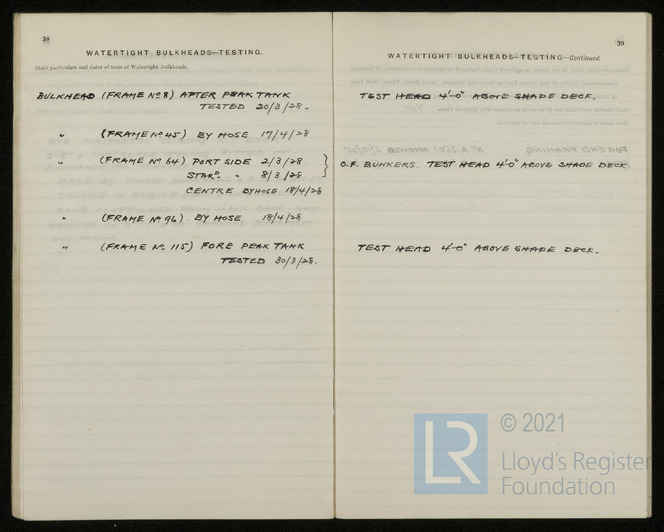 38
WATERTIGHT BULKHEADS—TESTING.
State particulars and dates of tests of Watertight Bulkheads.
BULKHEAD (FRAME No 8) AFTER PEAK TANK
TESTED 20/3/28.
" (FRAME No 45) BY HOSE 17/4/28
" (FRAME No 64) PORT SIDE 2/3/28.
STARD. " 8/3/28.
CENTRE BY HOSE 18/4/28
" (FRAME No 96) BY HOSE 18/4/28
" (FRAME No 115) FORE PEAK TANK
TESTED 30/3/28.
39
WATERTIGHT BULKHEADS—TESTING—Continued.
TEST HEAD 4'-0" ABOVE SHADE DECK.
O.F. BUNKERS. TEST HEAD 4'-0" ABOVE SHADE DECK.
TEST HEAD 4'-0" ABOVE SHADE DECK.
LR
© 2021
Lloyd's Register
Foundation